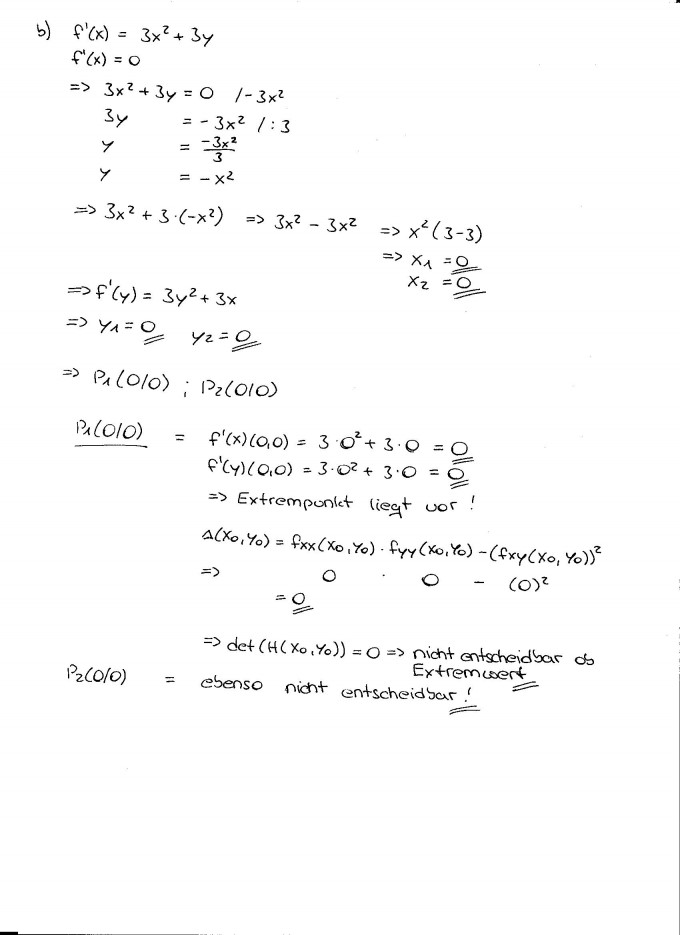 b) f'(x) = 3x² + 3y
f'(x) = 0
=> 3x² + 3y = 0 /-3x²
3y = -3x² /:3
y = -3x²/3
y = -x²
=> 3x² + 3·(-x²) => 3x² - 3x² => x²(3-3)
=> x1 = 0
x2 = 0
=> f'(y) = 3y² + 3x
=> y1 = 0 y2 = 0
=> P1(0/0) ; P2(0/0)
P1(0/0) = f'(x)(0,0) = 3·0² + 3·0 = 0
f'(y)(0,0) = 3·0² + 3·0 = 0
=> Extrempunkt liegt vor!
Δ(x0,y0) = fxx(x0,y0) · fyy(x0,y0) - (fxy(x0,y0))²
=> 0 · 0 - (0)²
= 0
=> det(H(x0,y0)) = 0 => nicht entscheidbar ob
Extremwert
P2(0/0) = ebenso nicht entscheidbar!